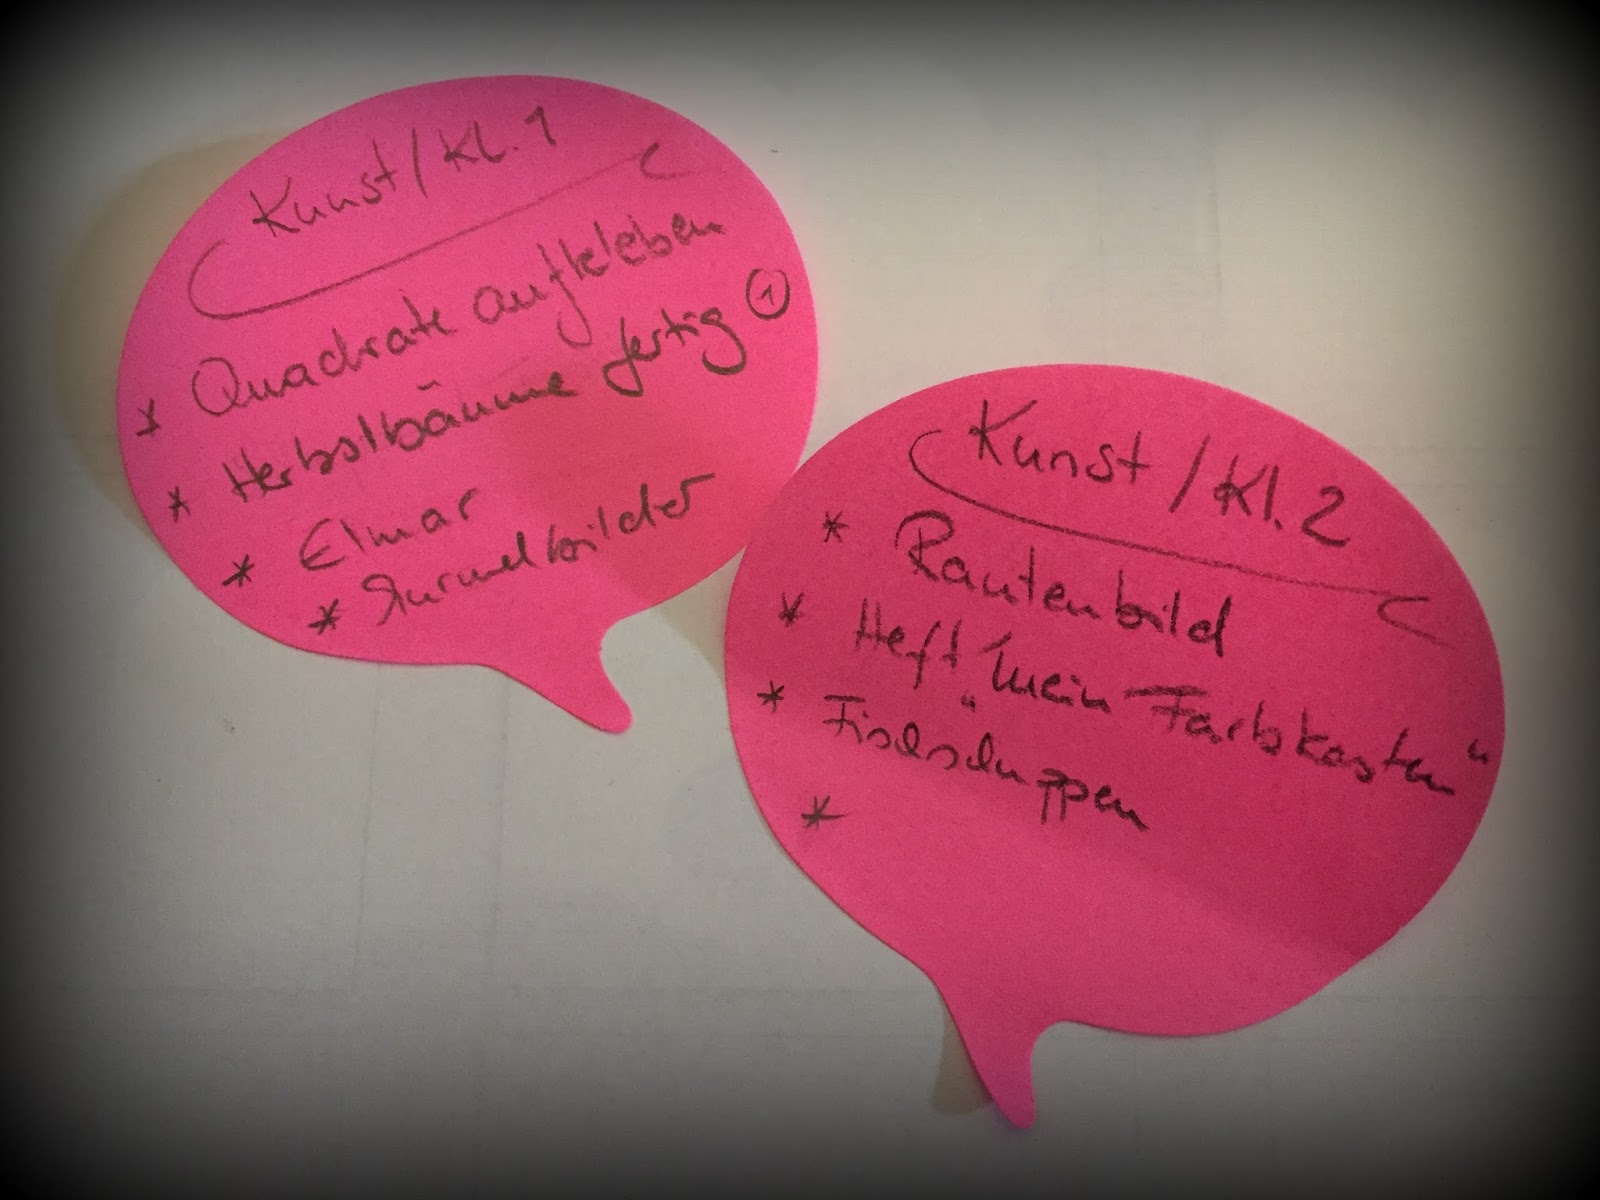 Kunst / Kl. 1
* Quadrate aufkleben
* Herbstbäume fertig ①
* Elmar
* Murmelbilder
Kunst / Kl. 2
* Rautenbild
* Heft „mein Farbkasten"
* Fischschuppen
*